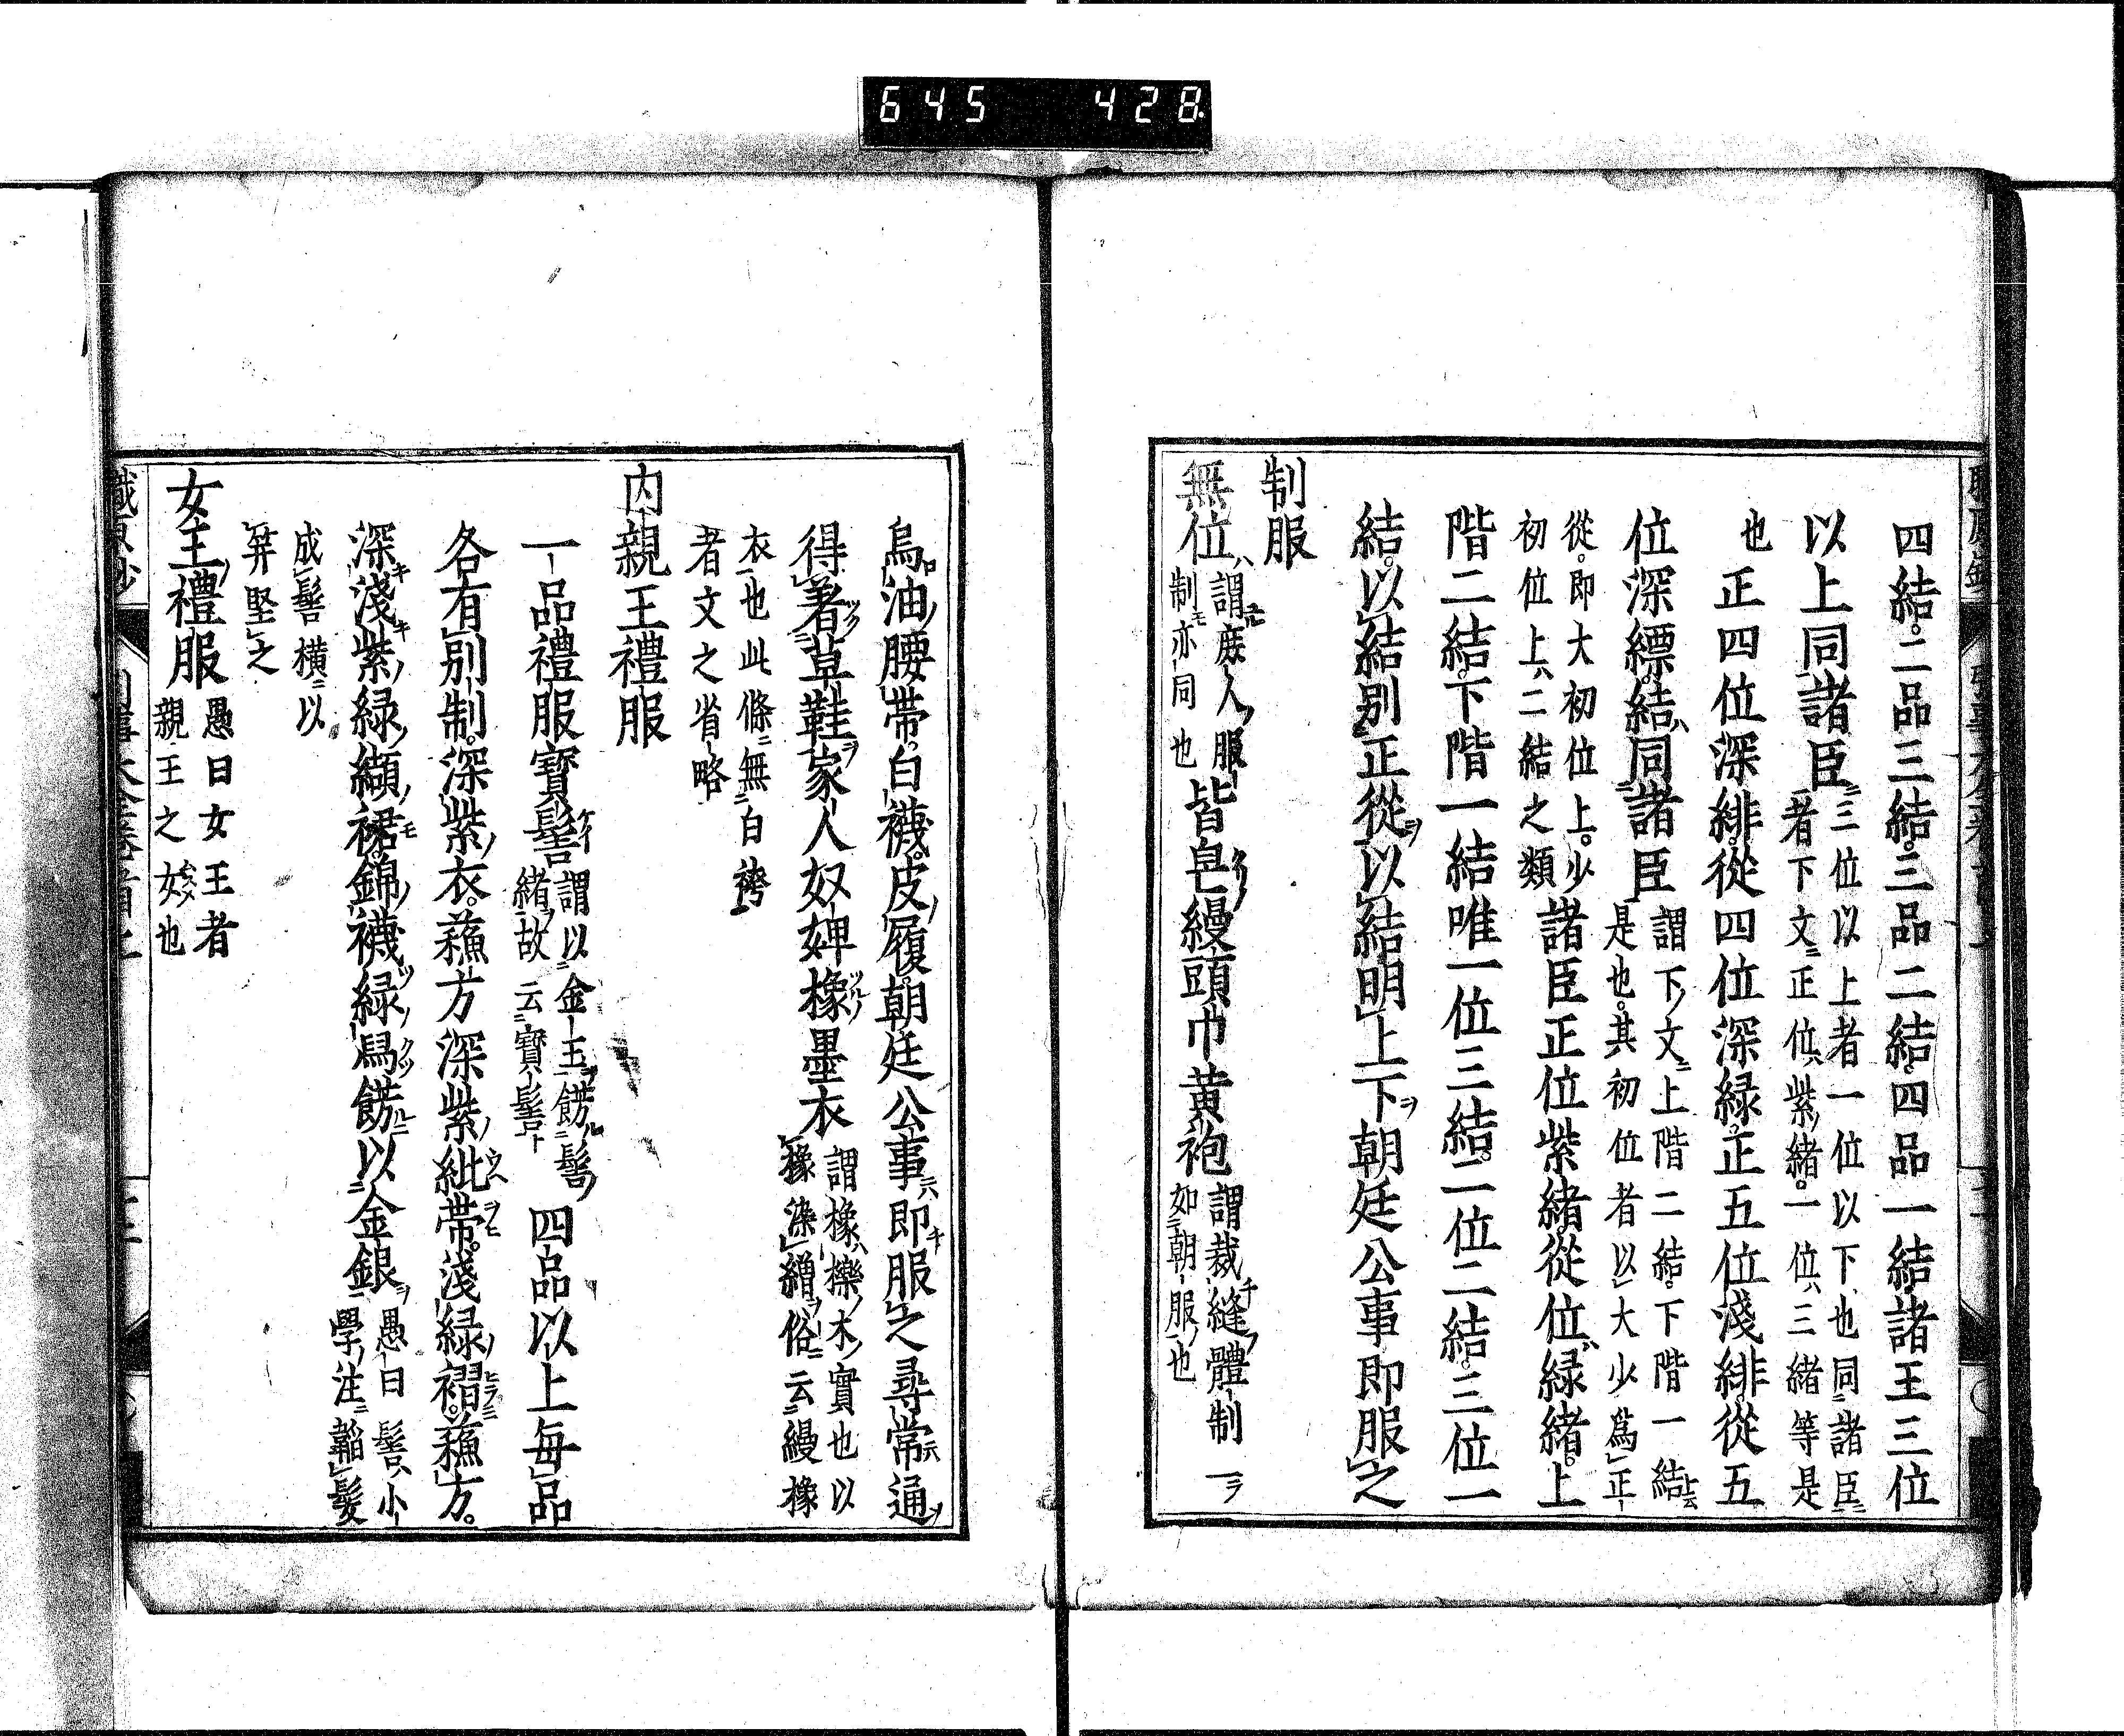 645 428
四結。二品三結。三品二結。四品一結諸王三位
以上同諸臣三位以上者一位以下也同諸臣
者下文正位紫緒。一位三緒等是
也正四位深緋。從四位深緑。正五位淺緋。從五
位深縹。結同諸臣謂下文上階二結。下階一結
是也。其初位者以大少爲正
從。即大初位上。少
初位上二結之類諸臣正位紫緒。從位緑緒。上
階二結。下階一結唯一位三結。二位二結。三位一
結。以結別正從。以結明上下朝廷公事即服之
制服
無位謂庶人服
制亦同也皆皀縵頭巾黄袍謂裁縫體制一
如朝服也
烏油腰帶。白襪。皮履。朝廷公事即服之尋常通
得著草鞋家人奴婢橡墨衣謂橡櫟木實也以
橡染繒俗云縵橡
衣也此條無白袴
者文之省略
内親王禮服
一品禮服寶髻謂以金玉餝髻
緒故云寶髻四品以上毎品
各有別制。深紫衣。蘓方深紫紕帶。淺緑褶。蘓方。
深淺紫緑纈裙。錦襪緑舄餝以金銀愚曰髻小
學注韜髮
成髻横以
笄堅之
女王禮服愚曰女王者
親王之女也